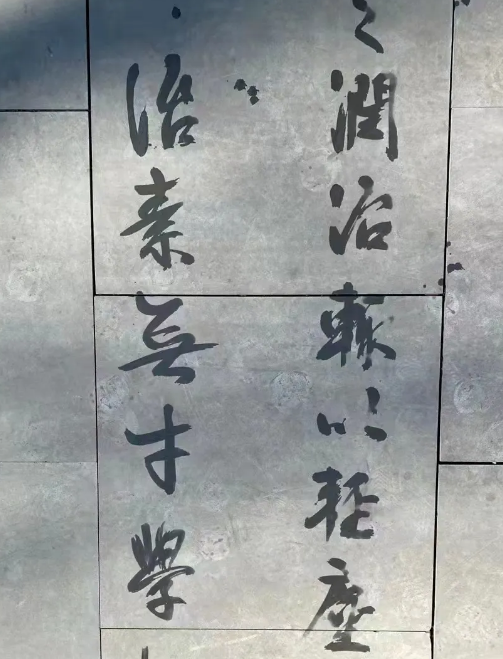 之潤治輒以輕塵
治素無才學